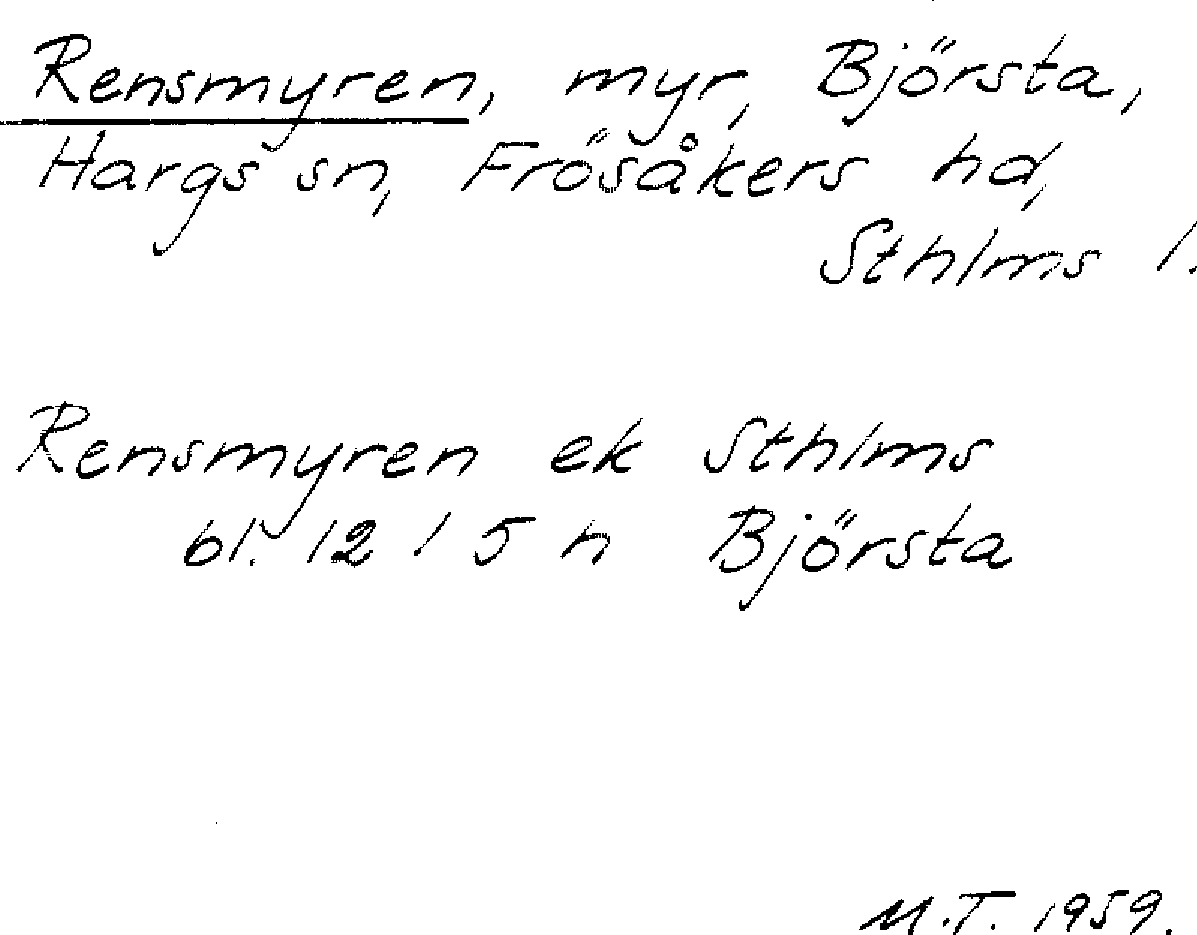 Rensmyren, myr, Björsta,
Hargs sn, Frösåkers hd,
Sthlms l.
Rensmyren ek Sthlms
bl. 12 I 5 h Björsta
M.T. 1959.